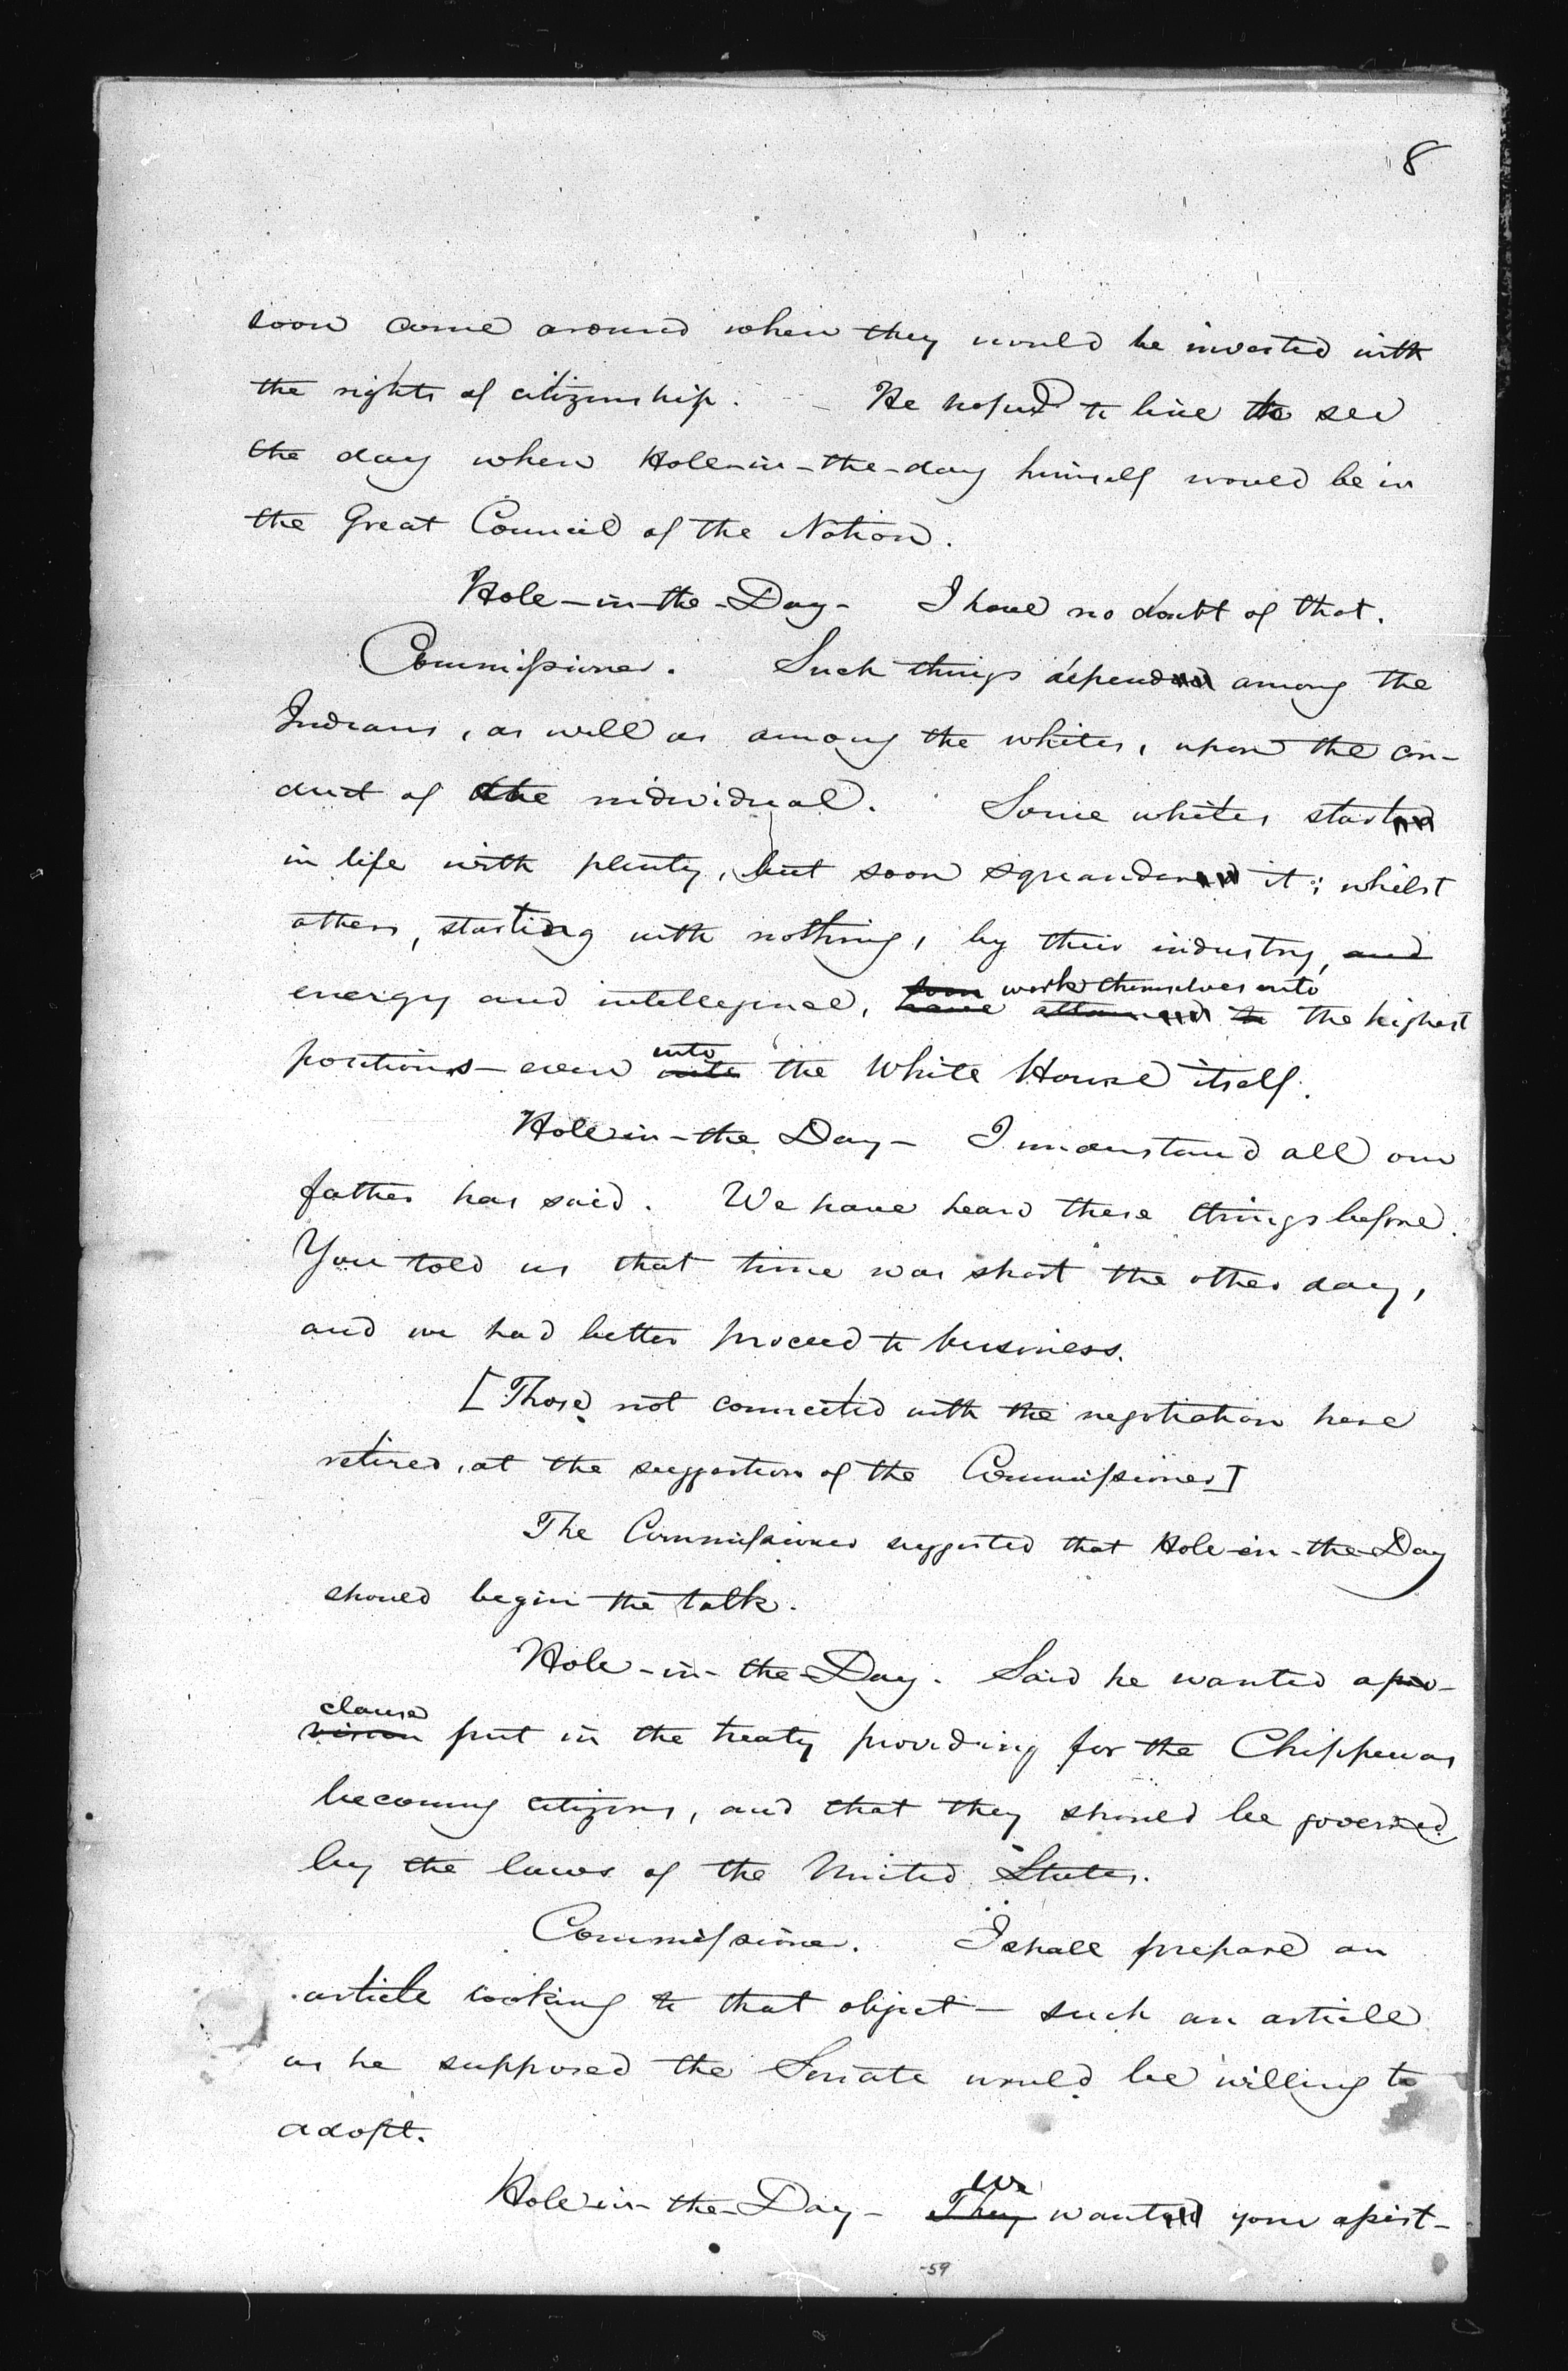 8
soon come around when they would be invested with
the rights of citizenship. - He hoped to live to see
the day when Hole-in-the-day himself would be in
the Great Council of the Nation.
Hole-in-the-Day- I have no doubt of that.
Commissioner. Such things depend among the
Indians, as well as among the whites, upon the con-
duct of the individual. Some whites start
in life with plenty, but soon squander it; whilst
others, starting with nothing, by their industry, and
soon work themselves into
energy and intelligence, have attained to the highest
into
positions - even into the White House itself.
Hole-in-the Day- I understand all our
father has said. We have heard these things before.
You told us that time was short the other day,
and we had better proceed to business.
[Those not connected with the negotiation here
retired, at the suggestion of the Commissioner]
The Commissioner suggested that Hole-in-the-Day
should begin the talk.
Hole-in-the-Day. Said he wanted a pro-
clause
vision put in the treaty providing for the Chippewas
becoming citizens, and that they should be governed
by the laws of the United States.
Commissioner. I shall prepare an
article looking to that object - such an article
as he supposed the Senate would be willing to
adopt.
We
Hole-in-the-Day- They wanted your assist-
-59